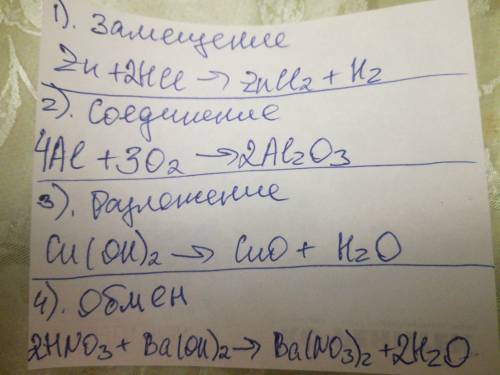 1). Замещение
Zn + 2HCl → ZnCl2 + H2
2). Соединение
4Al + 3O2 → 2Al2O3
3). Разложение
Cu(OH)2 → CuO + H2O
4). Обмен
2HNO3 + Ba(OH)2 → Ba(NO3)2 + 2H2O